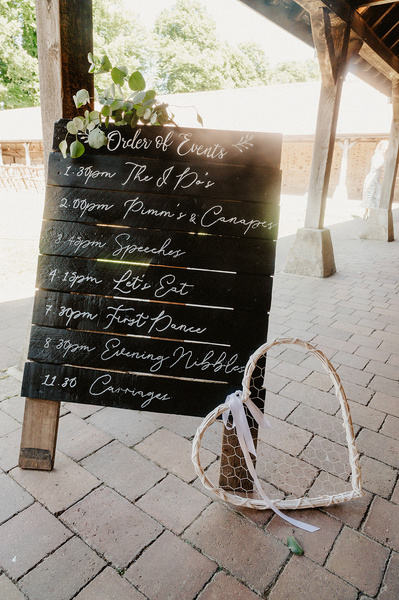 Order of Events
1.30pm The I Do's
2.00pm Pimm's & Canapes
3.45pm Speeches
4.15pm Let's Eat
7.30pm First Dance
8.30pm Evening Nibbles
11.30 Carriages